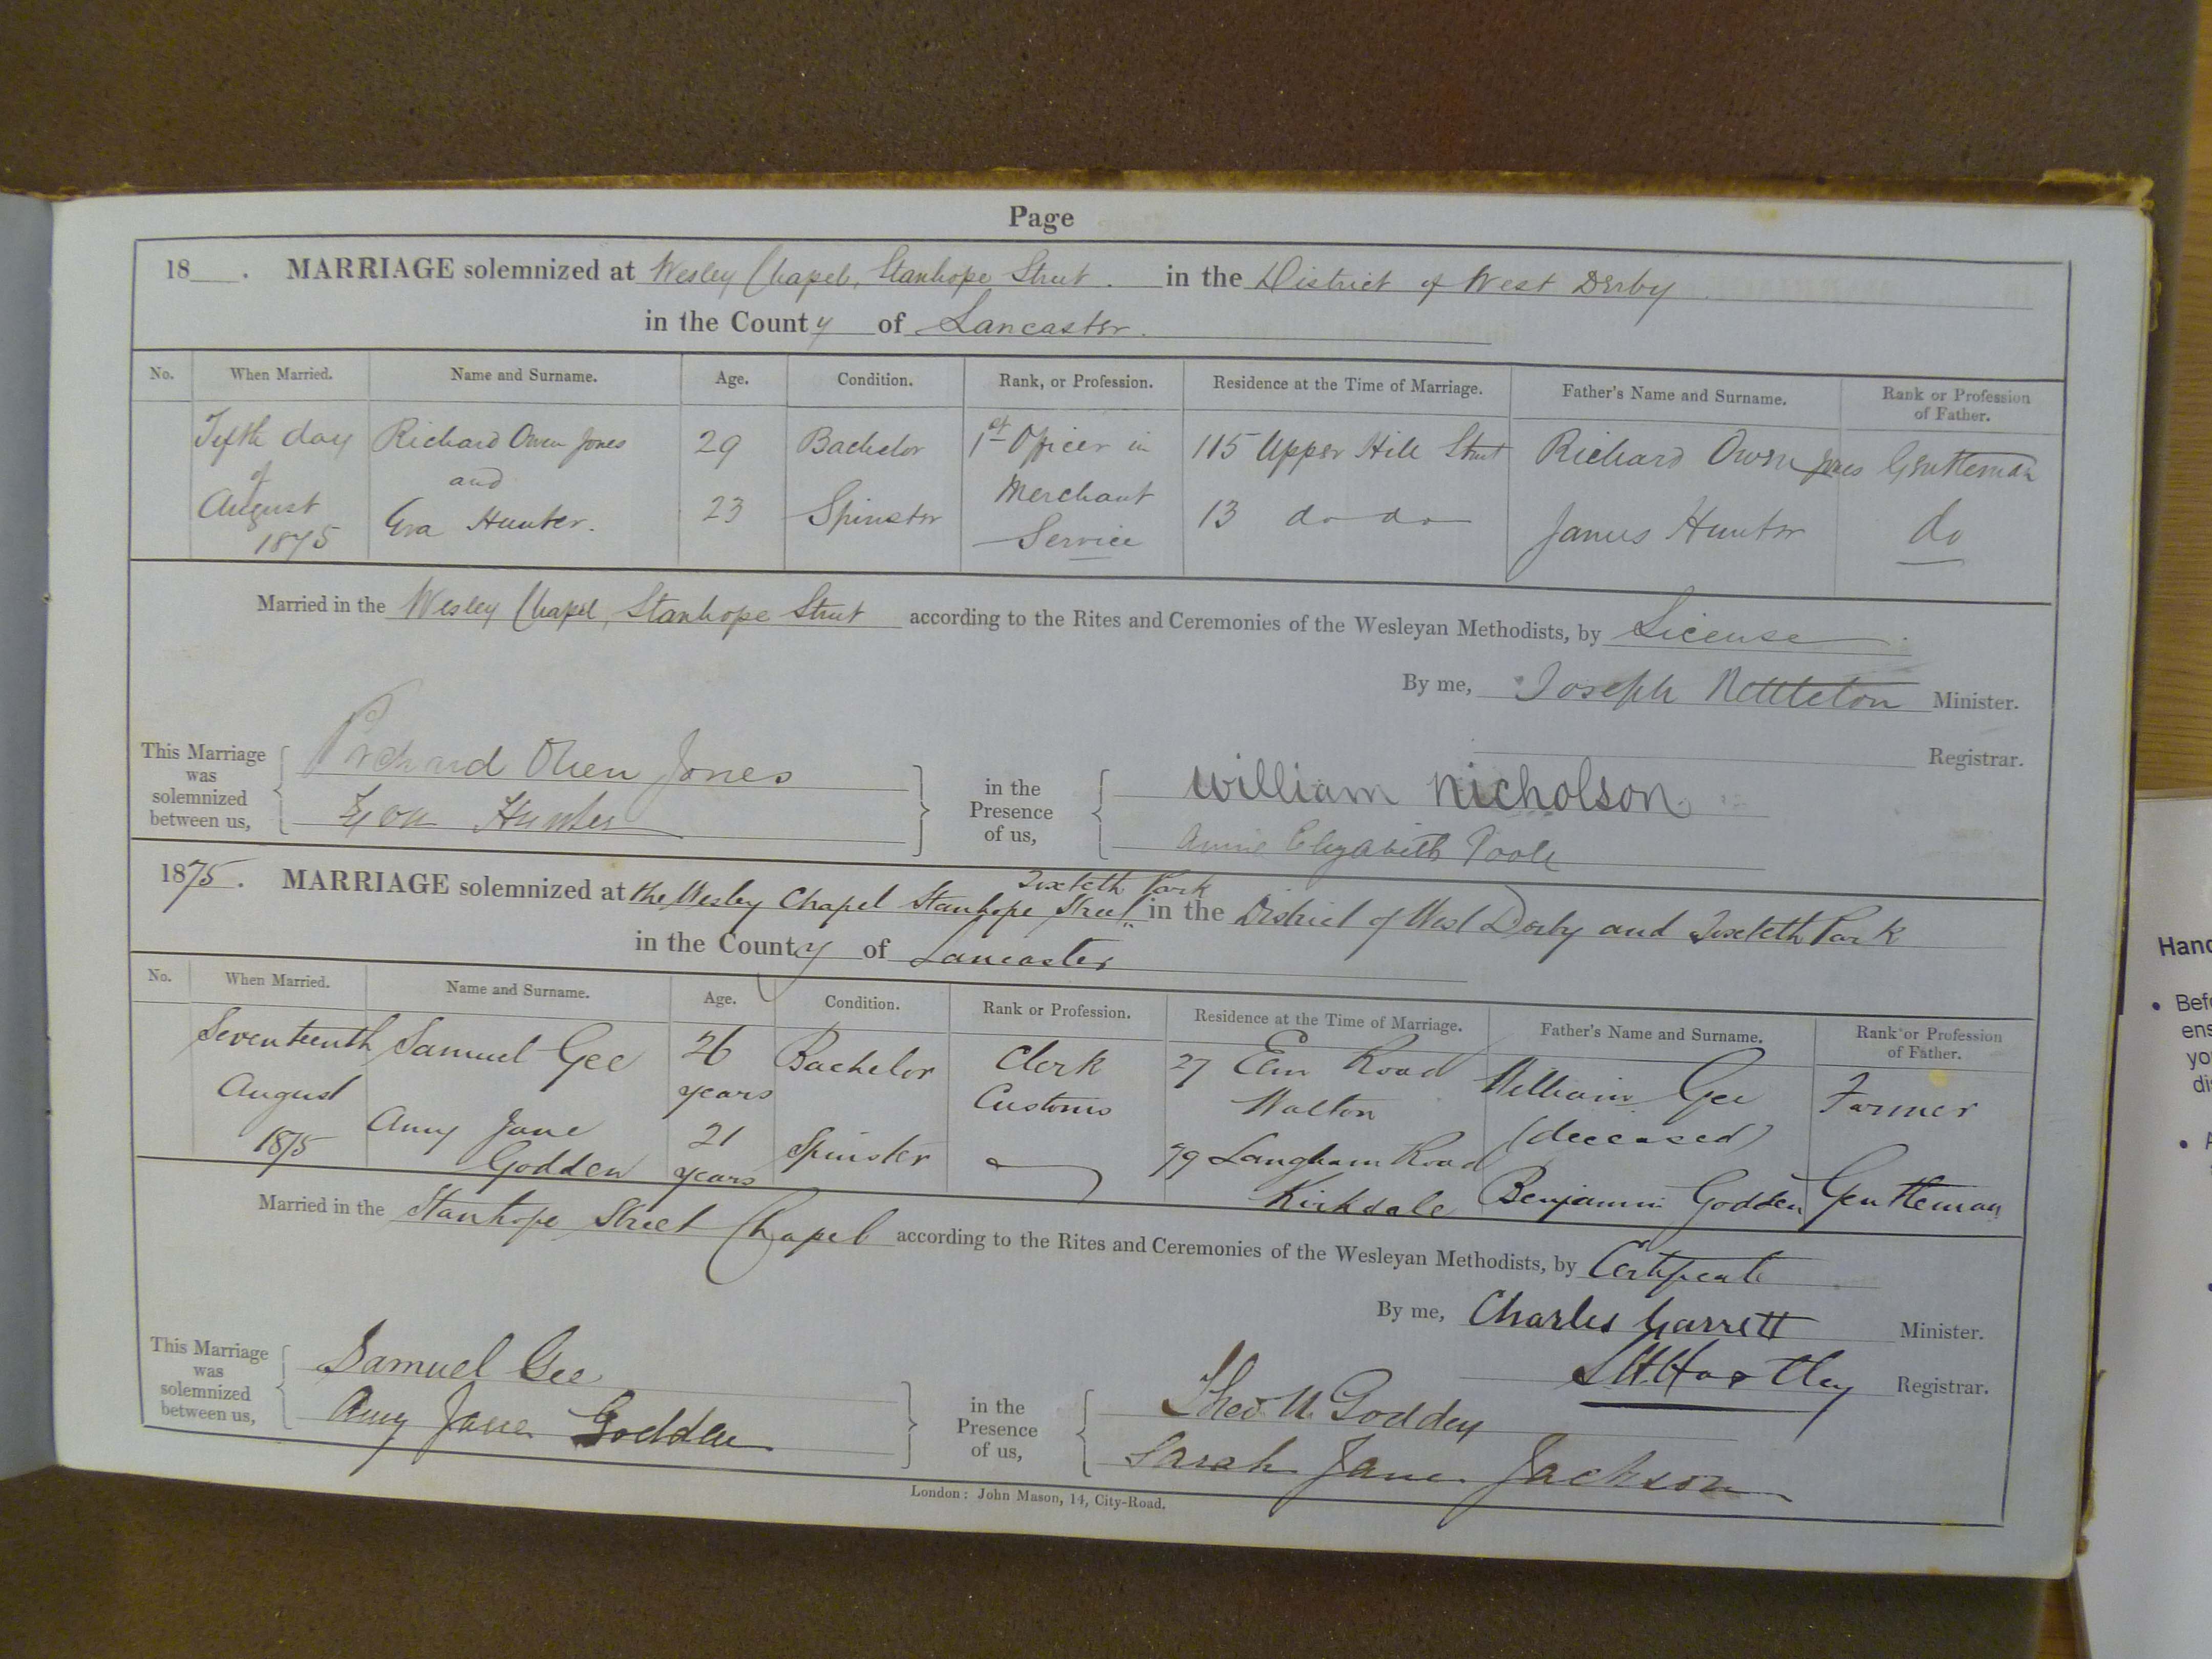 Page
18 . MARRIAGE solemnized at Wesley Chapel, Stanhope Street. in the District of West Derby
in the County of Lancaster.
No. When Married. Name and Surname. Age. Condition. Rank, or Profession. Residence at the Time of Marriage. Father's Name and Surname. Rank or Profession of Father.
Fifth day Richard Owen Jones 29 Bachelor 1st Officer in 115 Upper Hill Street Richard Owen Jones Gentleman
of and Merchant
August Eva Hunter. 23 Spinster Service 13 do do James Hunter do
1875
Married in the Wesley Chapel, Stanhope Street according to the Rites and Ceremonies of the Wesleyan Methodists, by License
By me, Joseph Nettleton Minister.
Registrar.
This Marriage was solemnized between us, Richard Owen Jones in the Presence of us, William Nicholson
Eva Hunter Annie Elizabeth Poole
1875. MARRIAGE solemnized at the Wesley Chapel Stanhope Street Toxteth Park in the District of West Derby and Toxteth Park
in the County of Lancaster
No. When Married. Name and Surname. Age. Condition. Rank or Profession. Residence at the Time of Marriage. Father's Name and Surname. Rank or Profession of Father.
Seventeenth Samuel Gee 26 years Bachelor Clerk Customs 27 Elm Road Walton William Gee (deceased) Farmer
August
1875 Amy Jane Godden 21 years Spinster 79 Langham Road Kirkdale Benjamin Godden Gentleman
Married in the Stanhope Street Chapel according to the Rites and Ceremonies of the Wesleyan Methodists, by Certificate
By me, Charles Garrett Minister.
Hartley Registrar.
This Marriage was solemnized between us, Samuel Gee in the Presence of us, Theo. Godden
Amy Jane Godden Sarah Jane Jackson
London: John Mason, 14, City-Road.